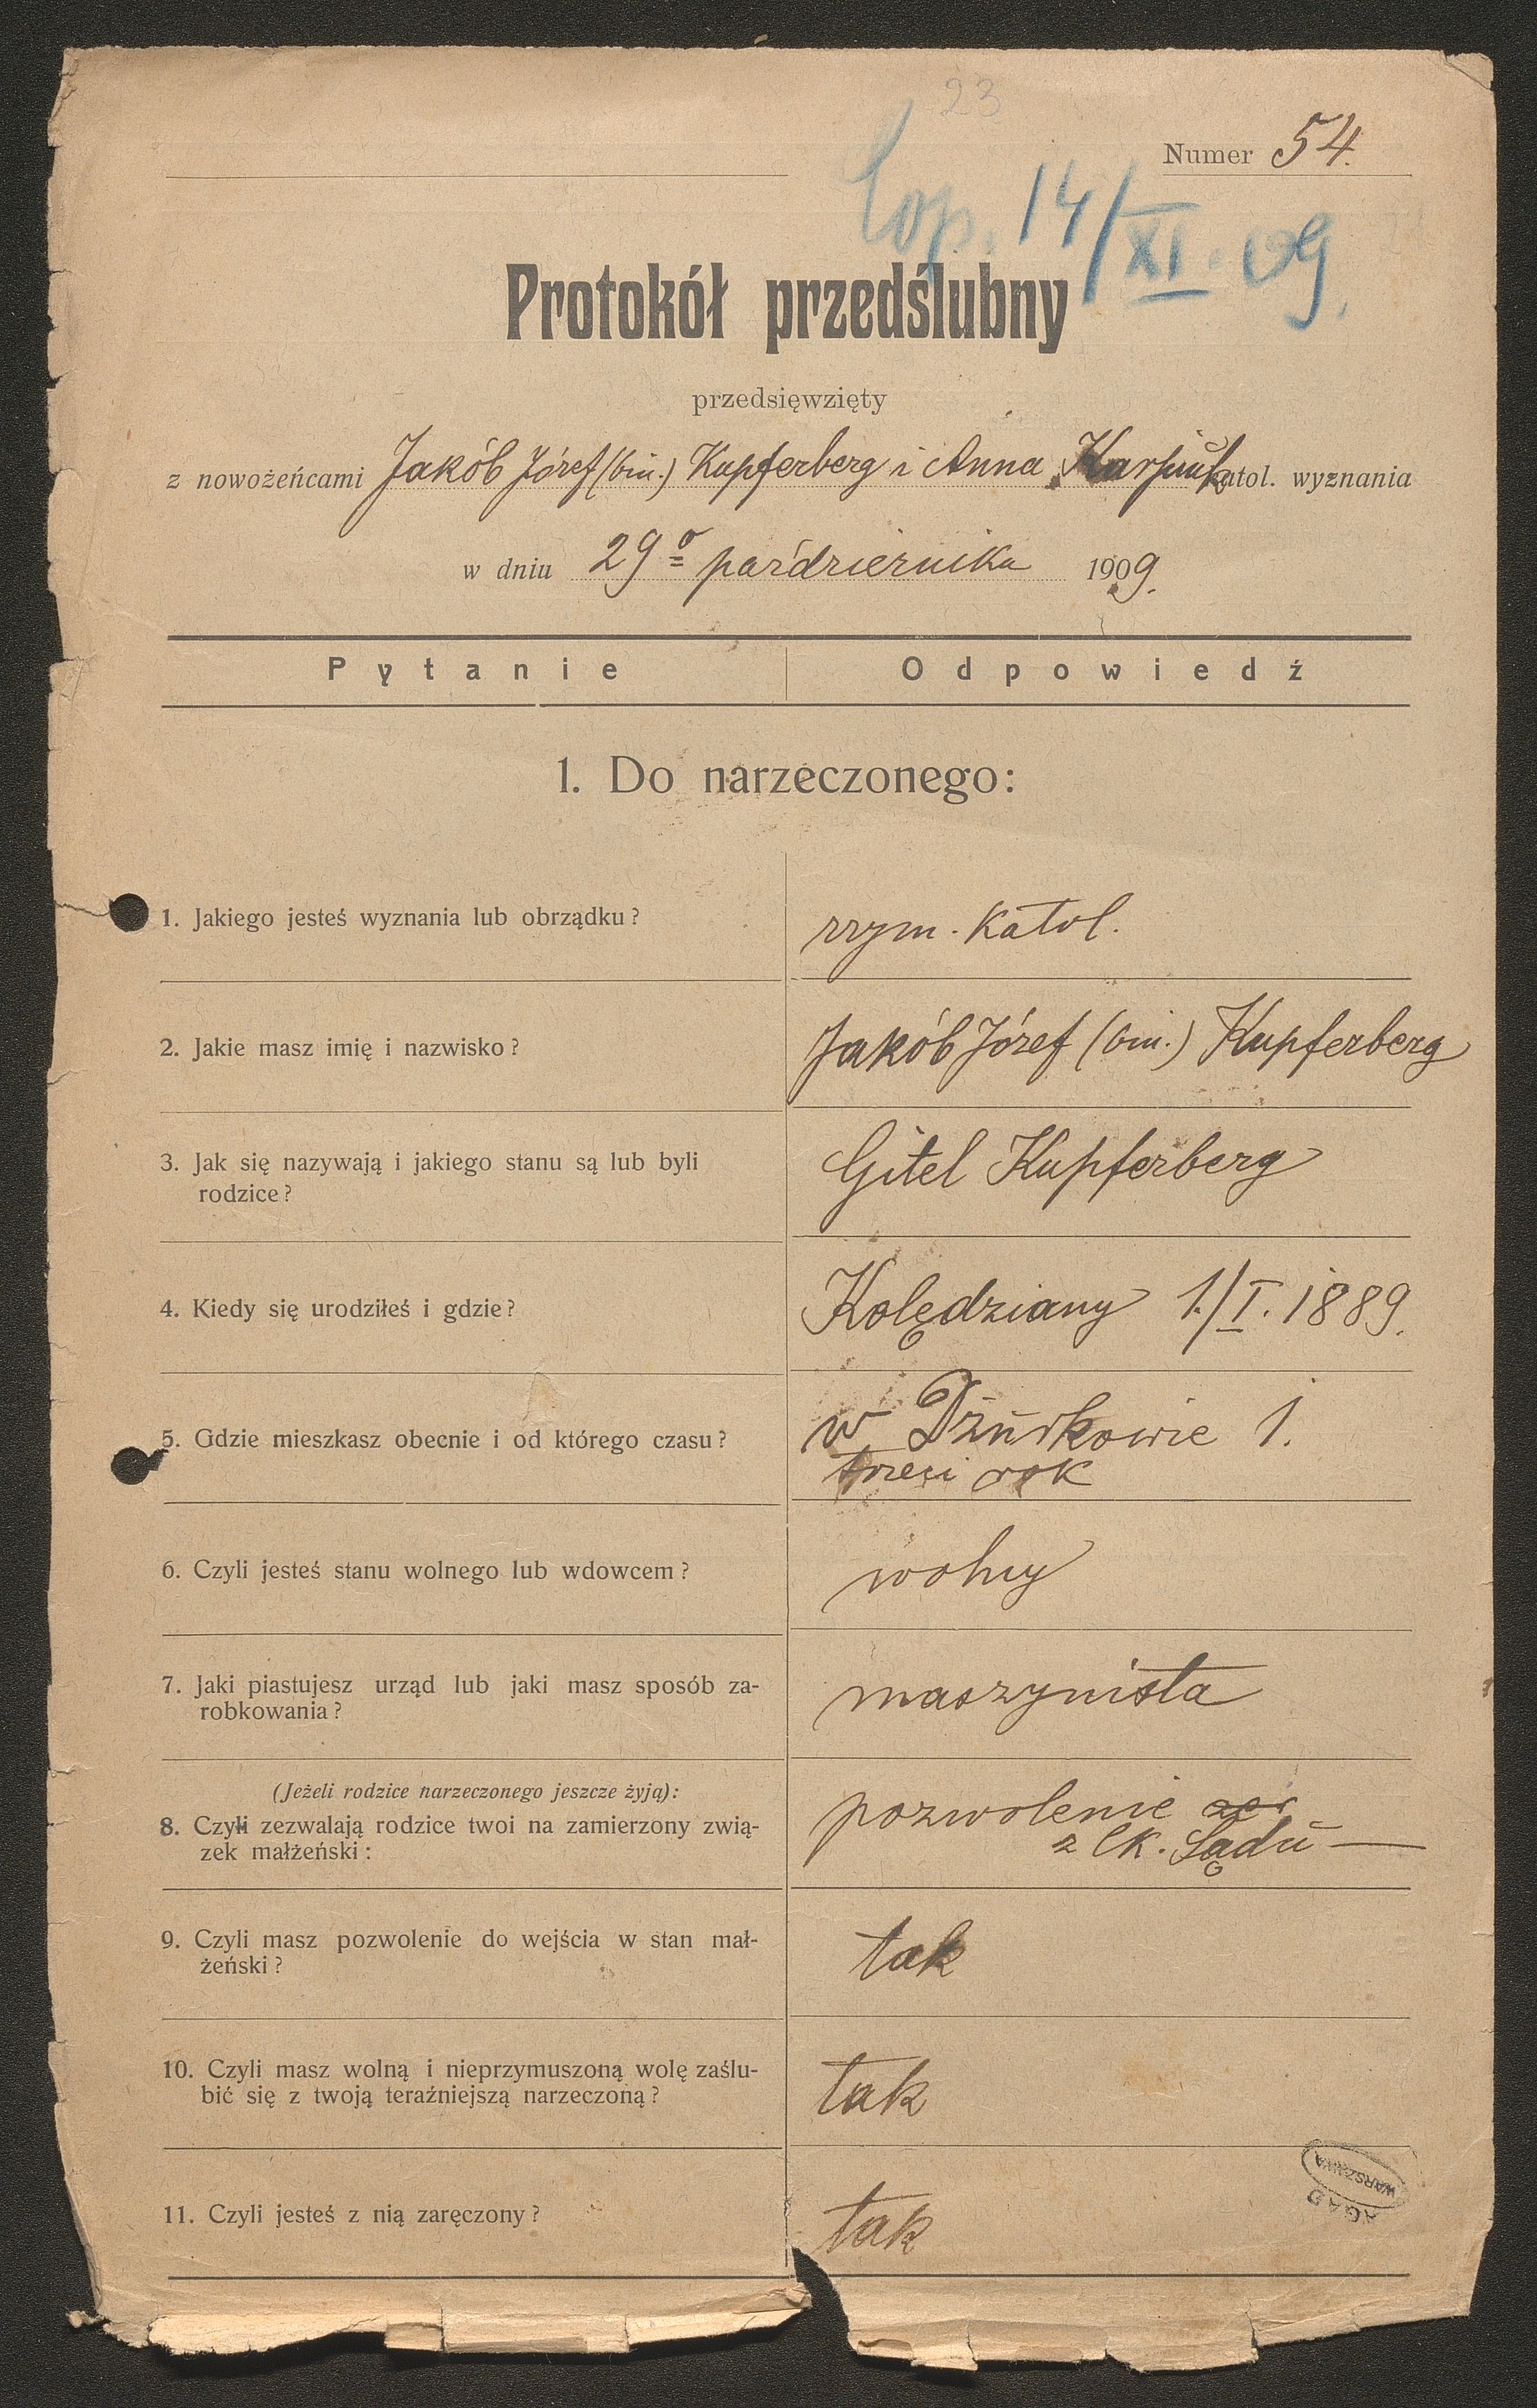 23
Numer 54.
Cop. 14/XI. 09.
Protokół przedślubny
przedsięwzięty
z nowożeńcami Jakób Józef (bin.) Kupferberg i Anna katol. wyznania
w dniu 29º października 1909.
Pytanie Odpowiedź
1. Do narzeczonego:
1. Jakiego jesteś wyznania lub obrządku? rzym. katol.
2. Jakie masz imię i nazwisko? Jakób Józef (bin.) Kupferberg
3. Jak się nazywają i jakiego stanu są lub byli
rodzice?
Gitel Kupferberg
4. Kiedy się urodziłeś i gdzie? Kolędziany 1./I. 1889.
5. Gdzie mieszkasz obecnie i od którego czasu? w Dżurkowie 1.
trzeci rok
6. Czyli jesteś stanu wolnego lub wdowcem? wolny
7. Jaki piastujesz urząd lub jaki masz sposób za-
robkowania?
maszynista
(Jeżeli rodzice narzeczonego jeszcze żyją):
8. Czyli zezwalają rodzice twoi na zamierzony zwią-
zek małżeński:
pozwolenie
z ck. Sądu
9. Czyli masz pozwolenie do wejścia w stan mał-
żeński?
tak
10. Czyli masz wolną i nieprzymuszoną wolę zaślu-
bić się z twoją teraźniejszą narzeczoną?
tak
11. Czyli jesteś z nią zaręczony? tak
AGAD
WARSZAWA